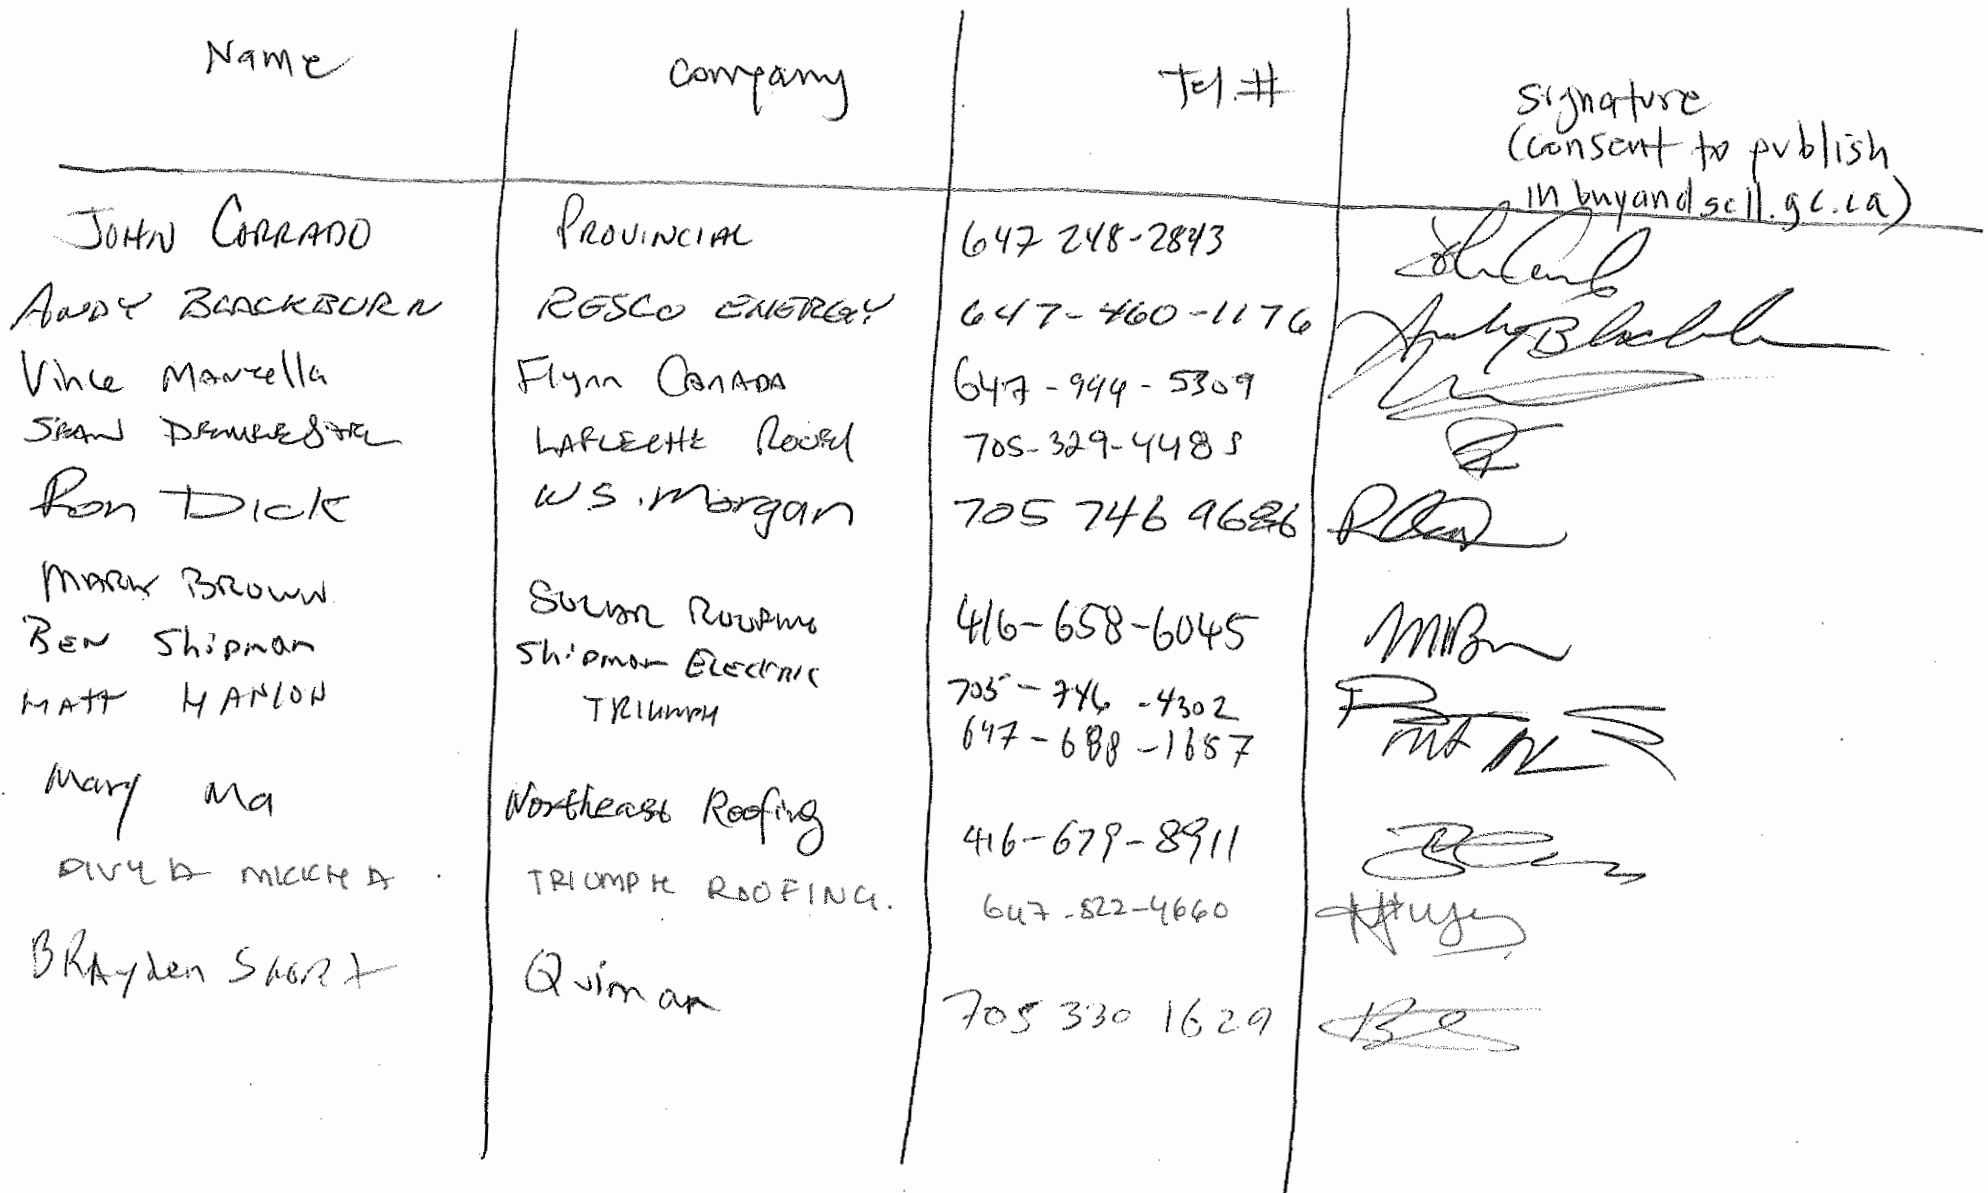 Name Company Tel.# Signature
(consent to publish
in buyandsell.gc.ca)
JOHN CORRADO PROVINCIAL 647 248-2843
ANDY BLACKBURN RESCO ENERGY 647-460-1176
Vince Mancella Flynn CANADA 647-944-5309
SEAN LAFLECHE 705-329-448
Ron Dick W S. Morgan 705 746
MARK BROWN ROOFING 416-658-6045
BEN Shipman Shipman ELECTRIC 705-746-4302
MATT HANLON TRIUMPH 647-688-1657
Mary Ma Northeast Roofing 416-679-8911
DIVYA TRIUMPH ROOFING. 647-522-4660
BRAyden SHORT Quiman 705 330 1629